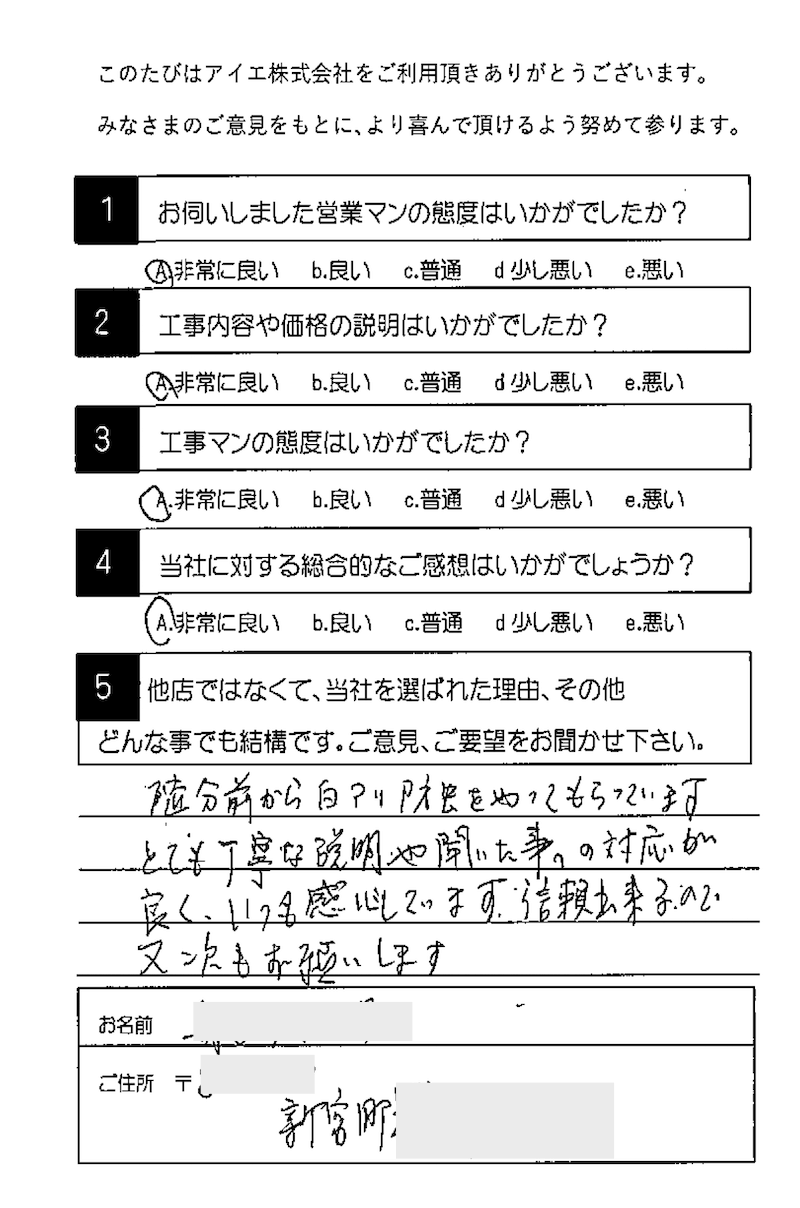 このたびはアイエ株式会社をご利用頂きありがとうございます。
みなさまのご意見をもとに、より喜んで頂けるよう努めて参ります。
1 お伺いしました営業マンの態度はいかがでしたか?
A.非常に良い b.良い c.普通 d少し悪い e.悪い
2 工事内容や価格の説明はいかがでしたか?
A.非常に良い b.良い c.普通 d少し悪い e.悪い
3 工事マンの態度はいかがでしたか?
A.非常に良い b.良い c.普通 d少し悪い e.悪い
4 当社に対する総合的なご感想はいかがでしょうか?
A.非常に良い b.良い c.普通 d少し悪い e.悪い
5 他店ではなくて、当社を選ばれた理由、その他
どんな事でも結構です。ご意見、ご要望をお聞かせ下さい。
随分前から白アリ防虫をやってもらっています
とても丁寧な説明や聞いた事の対応が
良く、いつも感心しています。信頼出来るので
又次もお願いします
お名前
ご住所 〒
新宮町